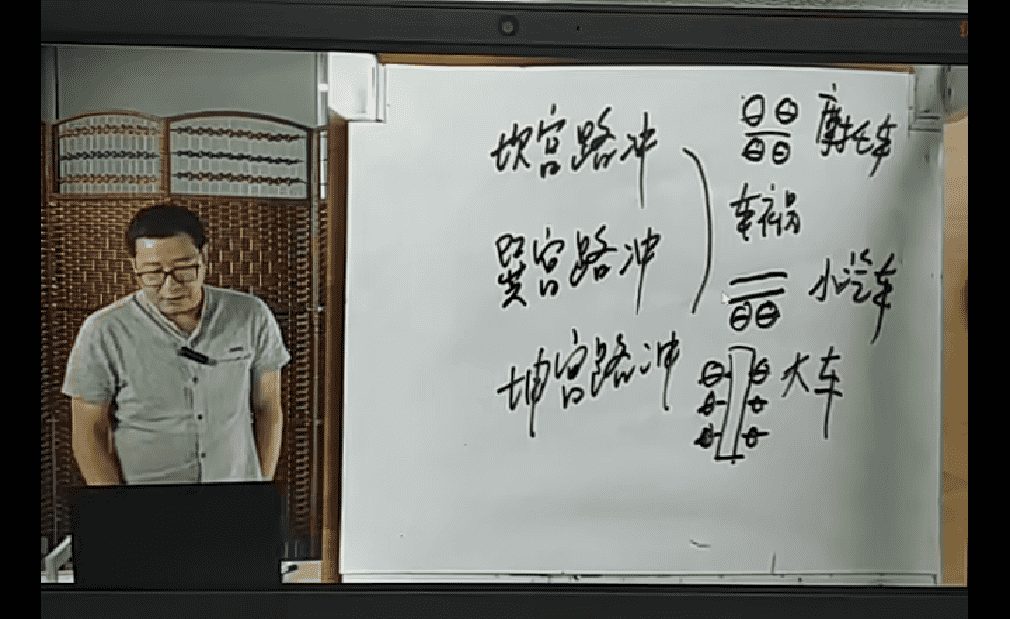 坎宫路冲
巽宫路冲
坤宫路冲
摩托车
车祸
小汽车
大车